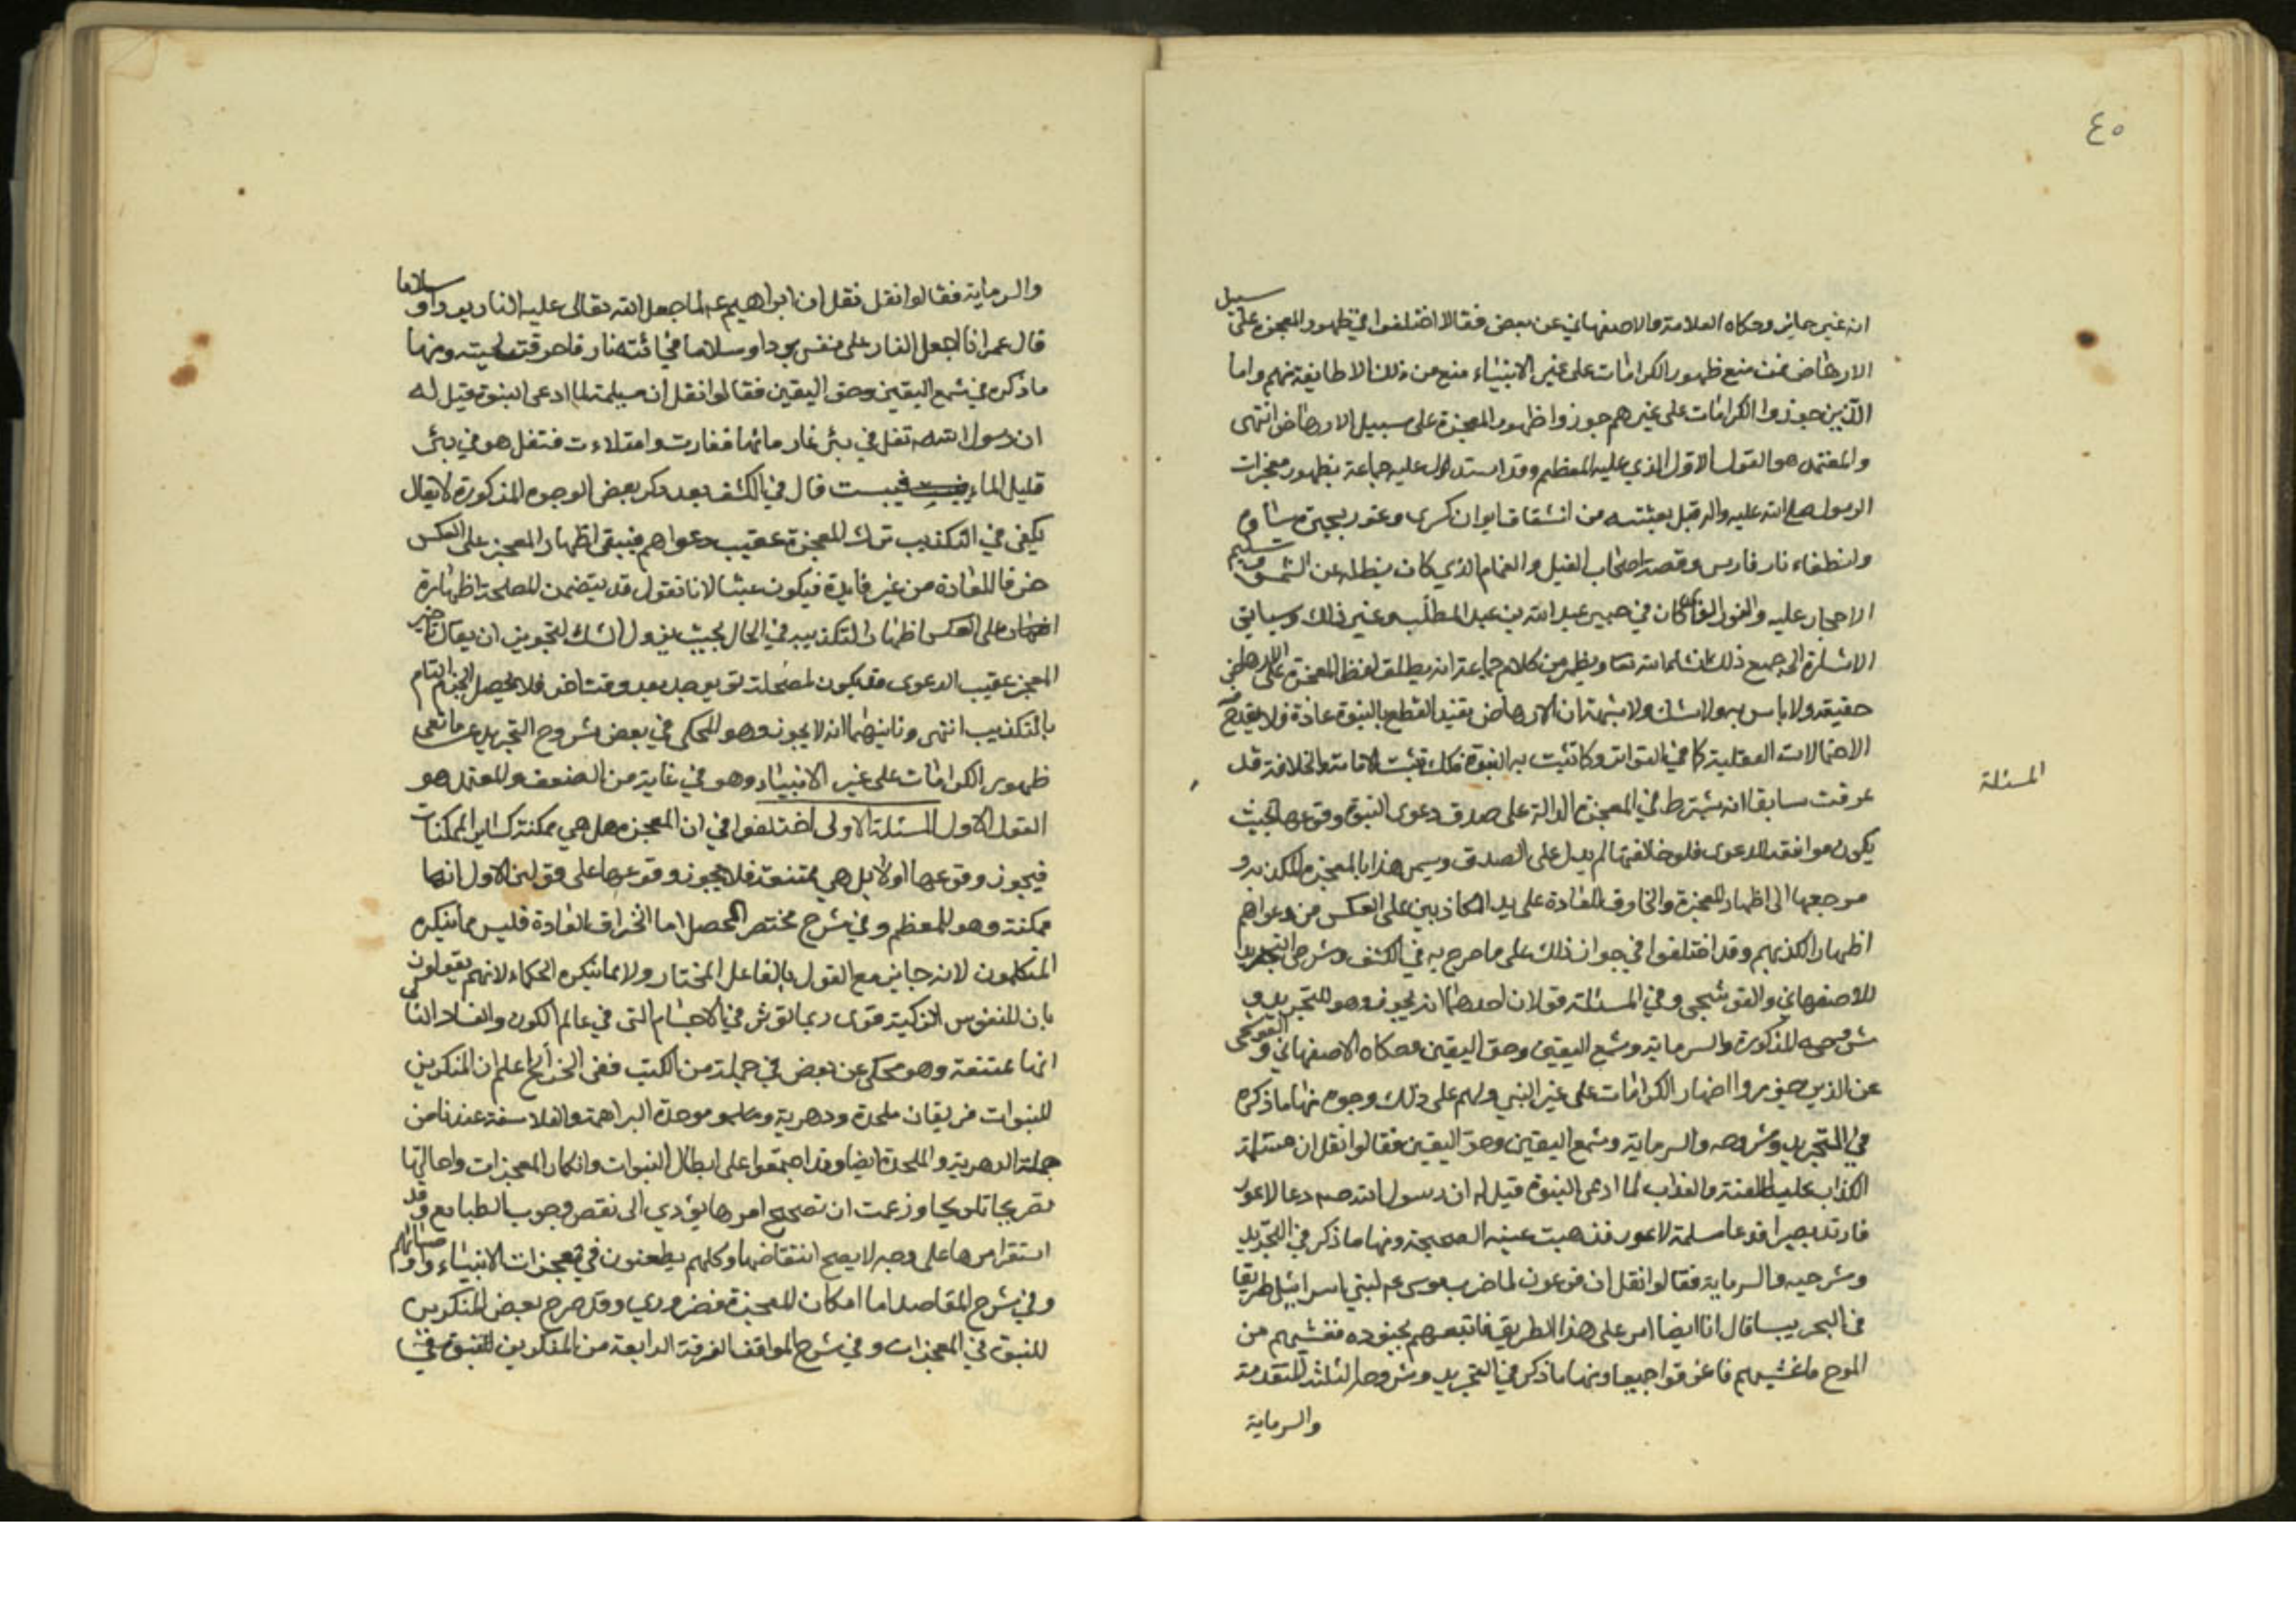 ٤٥
انه غير جايز وحكاه العلامة والاصفهاني عن بعض فقالا اختلفوا في ظهور المعجزة على سبيل
الارهاص فمن منع ظهور الكرامات على غير الانبياء منع من ذلك الا طايفة منهم واما
الذين جوزوا الكرامات على غيرهم جوزوا ظهور المعجزة على سبيل الارهاص انتهى
والمعتمد هو القول الاول الذي عليه المعظم وقد استدل عليه جماعة بظهور معجزات
الرسول صلى الله عليه واله قبل بعثته من انشقاق ايوان كسرى وغور بحيرة ساوه
وانطفاء نار فارس وقصة اصحاب الفيل والغمام الذي كان يظله عن الشمس وتسليم
الاحجار عليه والنور الذي كان في جبين عبد الله بن عبد المطلب وغير ذلك وسياتي
الاشارة الى جميع ذلك انشاء الله تعا ويظهر من كلام جماعة انه يطلق لفظ المعجزة على الارهاص
حقيقة ولا باس به ولا شك ولا شبهة ان الارهاص يفيد القطع بالنبوة عادة ولا يقدح فيه
الاحتمالات العقلية كما في التواتر وكما تثبت به النبوة فكك تثبت الامامة والخلافة قد
المسئلة
عرفت سابقا انه يشترط في المعجزة الدالة على صدق دعوى النبوة وقوعها بحيث
يكون موافقة للدعوى فلو خالفتها لم يدل على الصدق ويسمى هذا بالمعجزة المكذبة و
مرجعها الى اظهار المعجزة والخارق للعادة على يد الكاذبين على العكس من دعواهم
اظهارا لكذبهم وقد اختلفوا في جواز ذلك على ما صرح به في الكشف وشرحي التجريد
للاصفهاني والقوشجي وفي المسئلة قولان احدهما انه يجوز وهو للتجريد و
شروحه المذكورة والسرماية وشمع اليقين وحق اليقين وحكاه الاصفهاني والقوشجي
عن الذين جوزوا اظهار الكرامات على غير النبي ولهم على ذلك وجوه منها ما ذكره
في التجريد وشروحه والسرماية وشمع اليقين وحق اليقين فقالوا نقل ان مسيلمة
الكذاب عليه اللعنة والعذاب لما ادعى النبوة قيل له ان رسول الله صم دعا لاعور
فارتد بصيرا فدعا مسلمة لاعور فذهبت عينه الصحيحة ومنها ما ذكر في التجريد
وشرحيه والسرماية فقالوا نقل ان فرعون لما ضرب موسى عم لبني اسرائيل طريقا
في البحر يبسا قال انا ايضا امر على هذا الطريق فاتبعهم بجنوده فغشيهم من
الموج ما غشيهم فاغرقوا جميعا ومنها ما ذكر في التجريد وشروحه الثلثة المتقدمة
والسرماية
والسرماية فقالوا نقل ان ابراهيم عم لما جعل الله تعالى عليه النار بردا و سلاما
قال عمر انا اجعل النار على نفسي بردا وسلاما فجائته نار فاحرقت لحيته ومنها
ما ذكره في شمع اليقين وحق اليقين فقالوا نقل ان مسيلمة لما ادعى النبوة قيل له
ان رسول الله صم تفل في بئر غار مائها ففارت وامتلاءت فتفل هو في بئر
قليل الماء فيبست قال في الكشف بعد ذكر بعض الوجوه المذكورة لا يقال
يكفي في التكذيب ترك المعجزة عقيب دعواهم فيبقى اظهار المعجز على العكس
خرقا للعادة من غير فايدة فيكون عبثا لانا نقول قد يتضمن المصلحة اظهاره
على العكس اظهارا لتكذيبه في الحال بحيث يزول الشك لتجويز ان يقال تاخير
المعجز عقيب الدعوى قد يكون لمصلحة ثم يوجد بعد وقت اخر فلا يحصل الجزم التام
بالتكذيب انتهى وثانيهما انه لا يجوز وهو المحكي في بعض شروح التجريد عن مانعي
ظهور الكرامات على غير الانبياء وهو في غاية من الضعف والمعتمد هو
القول الاول المسئلة الاولى اختلفوا في ان المعجزة هل هي ممكنة كساير الممكنات
فيجوز وقوعها او لا بل هي ممتنعة فلا يجوز وقوعها على قولين الاول انها
ممكنة وهو للمعظم وفي شرح مختصر المحصل اما انخراق العادة فليس مما ينكره
المتكلمون لانه جايز مع القول بالفاعل المختار ولا مما ينكره الحكماء لانهم يقولون
بان للنفوس الزكية قوى ربما تؤثر في الاجسام التي في عالم الكون والفساد الثاني
انها ممتنعة وهو محكي عن بعض في جملة من الكتب ففي الخرائج اعلم ان المنكرين
للنبوات فريقان ملحدة ودهرية وموحدة البراهمة والفلاسفة عندنا من
جملة الدهرية والملحدة ايضا وقد اجتمعوا على ابطال النبوات وانكار المعجزات واحالتها
تصريحا تلويحا وزعمت ان تصحيح امرها يؤدي الى نقض وجوب الطبايع وقد
استقر امرها على وجه لا يصح انتقاضها وكلهم يطعنون في معجزات الانبياء واوصيائهم
وفي شرح المقاصد اما امكان المعجزة فضروري وقد صرح بعض المنكرين
للنبوة في المعجزات وفي شرح المواقف الفرقة الرابعة من المنكرين للنبوة